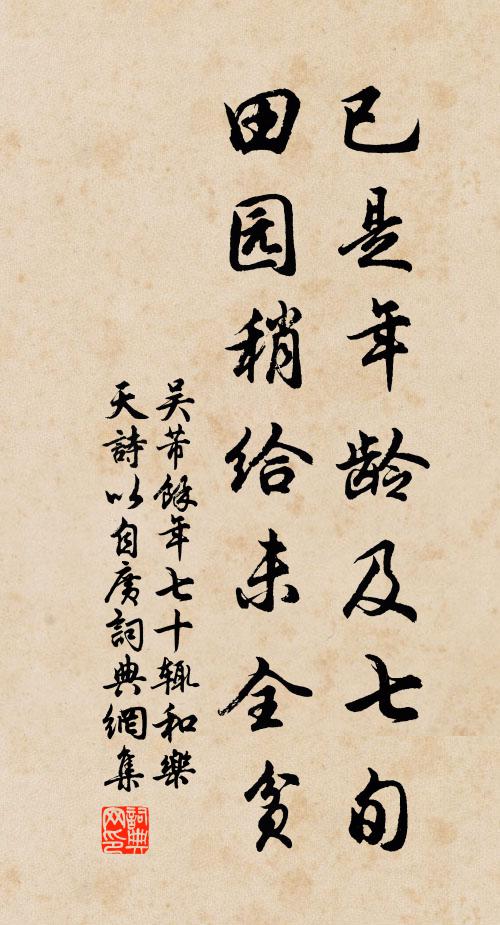 已是年龄及七旬
田园稍给未全贫
吴芾馀年七十辄和樂
天詩以自廣詞典網集
詞典网印